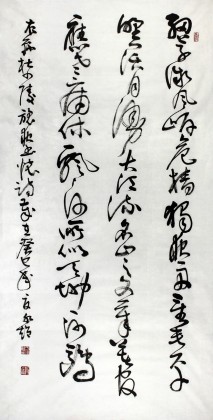 細草微風岸危檣獨夜舟星垂平
野闊月湧大江流名豈文章著官
應老病休飄飄何所似天地一沙鷗
杜少陵旅夜書懷詩歲在癸巳